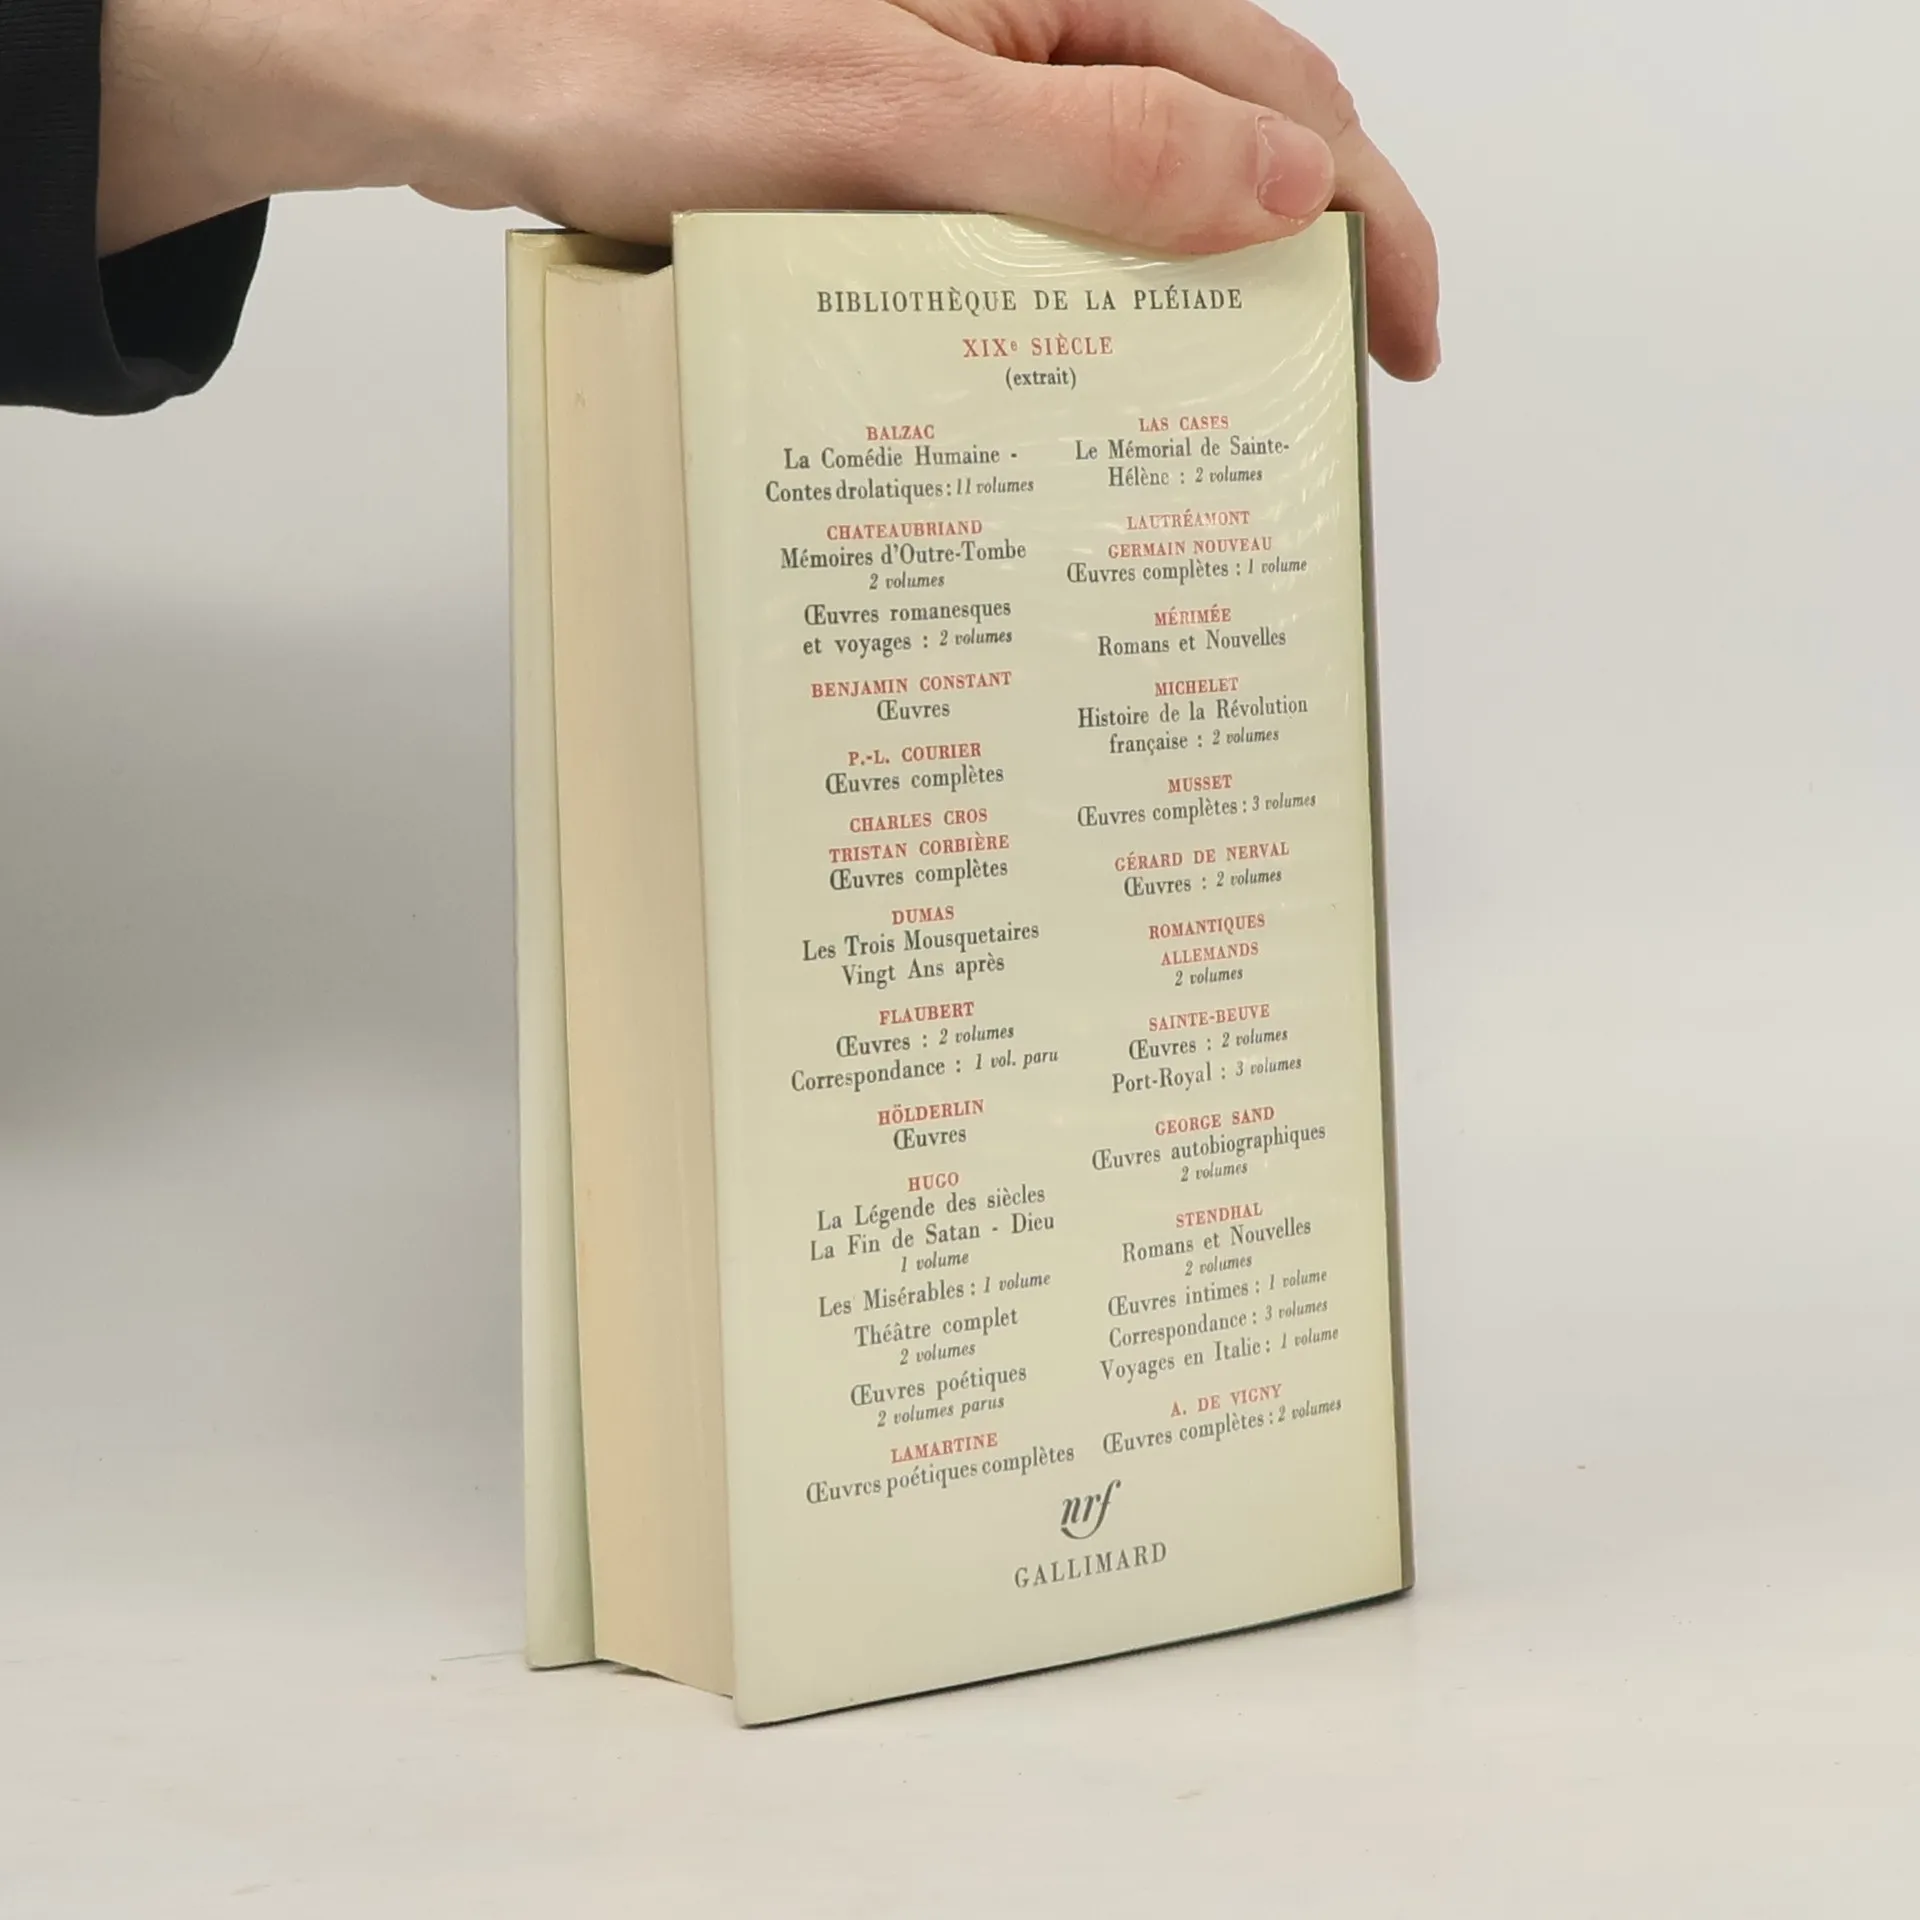 BIBLIOTHÈQUE DE LA PLÉIADE
XIXe SIÈCLE
(extrait)
BALZAC
La Comédie Humaine -
Contes drolatiques : 11 volumes
CHATEAUBRIAND
Mémoires d'Outre-Tombe
2 volumes
Œuvres romanesques
et voyages : 2 volumes
BENJAMIN CONSTANT
Œuvres
P.-L. COURIER
Œuvres complètes
CHARLES CROS
TRISTAN CORBIÈRE
Œuvres complètes
DUMAS
Les Trois Mousquetaires
Vingt Ans après
FLAUBERT
Œuvres : 2 volumes
Correspondance : 1 vol. paru
HÖLDERLIN
Œuvres
HUGO
La Légende des siècles
La Fin de Satan - Dieu
1 volume
Les Misérables : 1 volume
Théâtre complet
2 volumes
Œuvres poétiques
2 volumes parus
LAMARTINE
Œuvres poétiques complètes
LAS CASES
Le Mémorial de Sainte-
Hélène : 2 volumes
LAUTRÉAMONT
GERMAIN NOUVEAU
Œuvres complètes : 1 volume
MÉRIMÉE
Romans et Nouvelles
MICHELET
Histoire de la Révolution
française : 2 volumes
MUSSET
Œuvres complètes : 3 volumes
GÉRARD DE NERVAL
Œuvres : 2 volumes
ROMANTIQUES
ALLEMANDS
2 volumes
SAINTE-BEUVE
Œuvres : 2 volumes
Port-Royal : 3 volumes
GEORGE SAND
Œuvres autobiographiques
2 volumes
STENDHAL
Romans et Nouvelles
2 volumes
Œuvres intimes : 1 volume
Correspondance : 3 volumes
Voyages en Italie : 1 volume
A. DE VIGNY
Œuvres complètes : 2 volumes
nrf
GALLIMARD